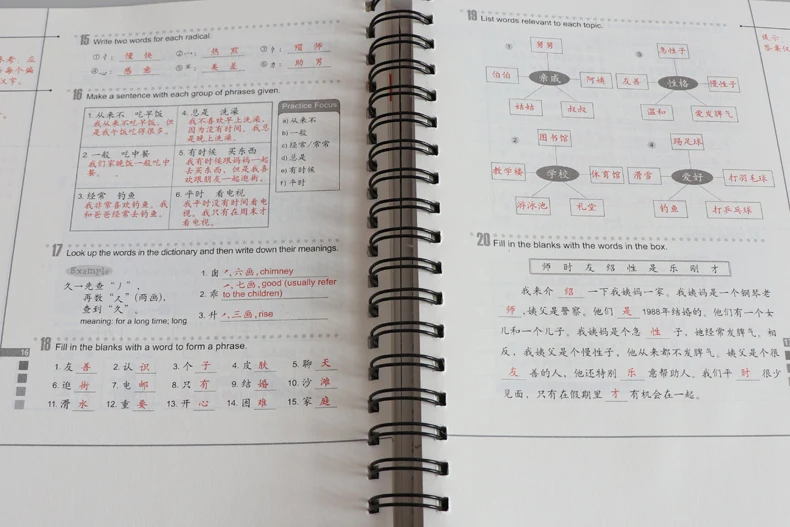 15 Write two words for each radical.
①忄: 慢 快 ②灬: 热 煎 ③巾: 帽 师
④心: 感 意 ⑤ 美 差 ⑥力: 助 男
16 Make a sentence with each group of phrases given.
1. 从来不 吃早饭
我从来不吃早饭,但
是我午饭吃得很多。
4. 总是 洗澡
我不喜欢早上洗澡,
因为没有时间,我总
是晚上洗澡。
2. 一般 吃中餐
我们家晚饭一般吃中
餐。
5. 有时候 买东西
我有时候跟妈妈一起
去买东西,但是我喜
欢跟朋友一起逛街。
3. 经常 钓鱼
我非常喜欢钓鱼。我
和爸爸经常去钓鱼。
6. 平时 看电视
我平时没有时间看电
视。我只有在周末才
看电视。
Practice Focus
a) 从来不
b) 一般
c) 经常/常常
d) 总是
e) 有时候
f) 平时
17 Look up the words in the dictionary and then write down their meanings.
Example
久一先查“丿”,
再数“久”(两画),
查到“久”。
meaning: for a long time; long
1. 囱 丿,六画,chimney
2. 乖 丿,七画,good (usually refer
to the children)
3. 升 丿,三画,rise
16
18 Fill in the blanks with a word to form a phrase.
1. 友 善 2. 认 识 3. 个 子 4. 皮 肤 5. 聊 天
6. 逛 街 7. 电 邮 8. 只 有 9. 结 婚 10. 沙 滩
11. 滑 水 12. 重 要 13. 开 心 14. 困 难 15. 家 庭
19 List words relevant to each topic.
①
舅舅
伯伯
亲戚
阿姨
姑姑
叔叔
③
急性子
友善
性格
慢性子
温和
爱发脾气
②
图书馆
教学楼
学校
体育馆
游泳池
礼堂
④
踢足球
滑雪
爱好
打羽毛球
钓鱼
打乒乓球
20 Fill in the blanks with the words in the box.
师 时 友 绍 性 是 乐 刚 才
我来介 绍 一下我姨妈一家。我姨妈是一个钢琴老
师 ,姨父是警察。他们 是 1988年结婚的。他们有一个女
儿和一个儿子。我姨妈是个急 性 子,她经常发脾气,相
反,我姨父是个慢性子,他从来都不发脾气。姨父是个很
友 善的人,他还特别 乐 意帮助人。我们平 时 很少
见面,只有在假期里 才 有机会在一起。